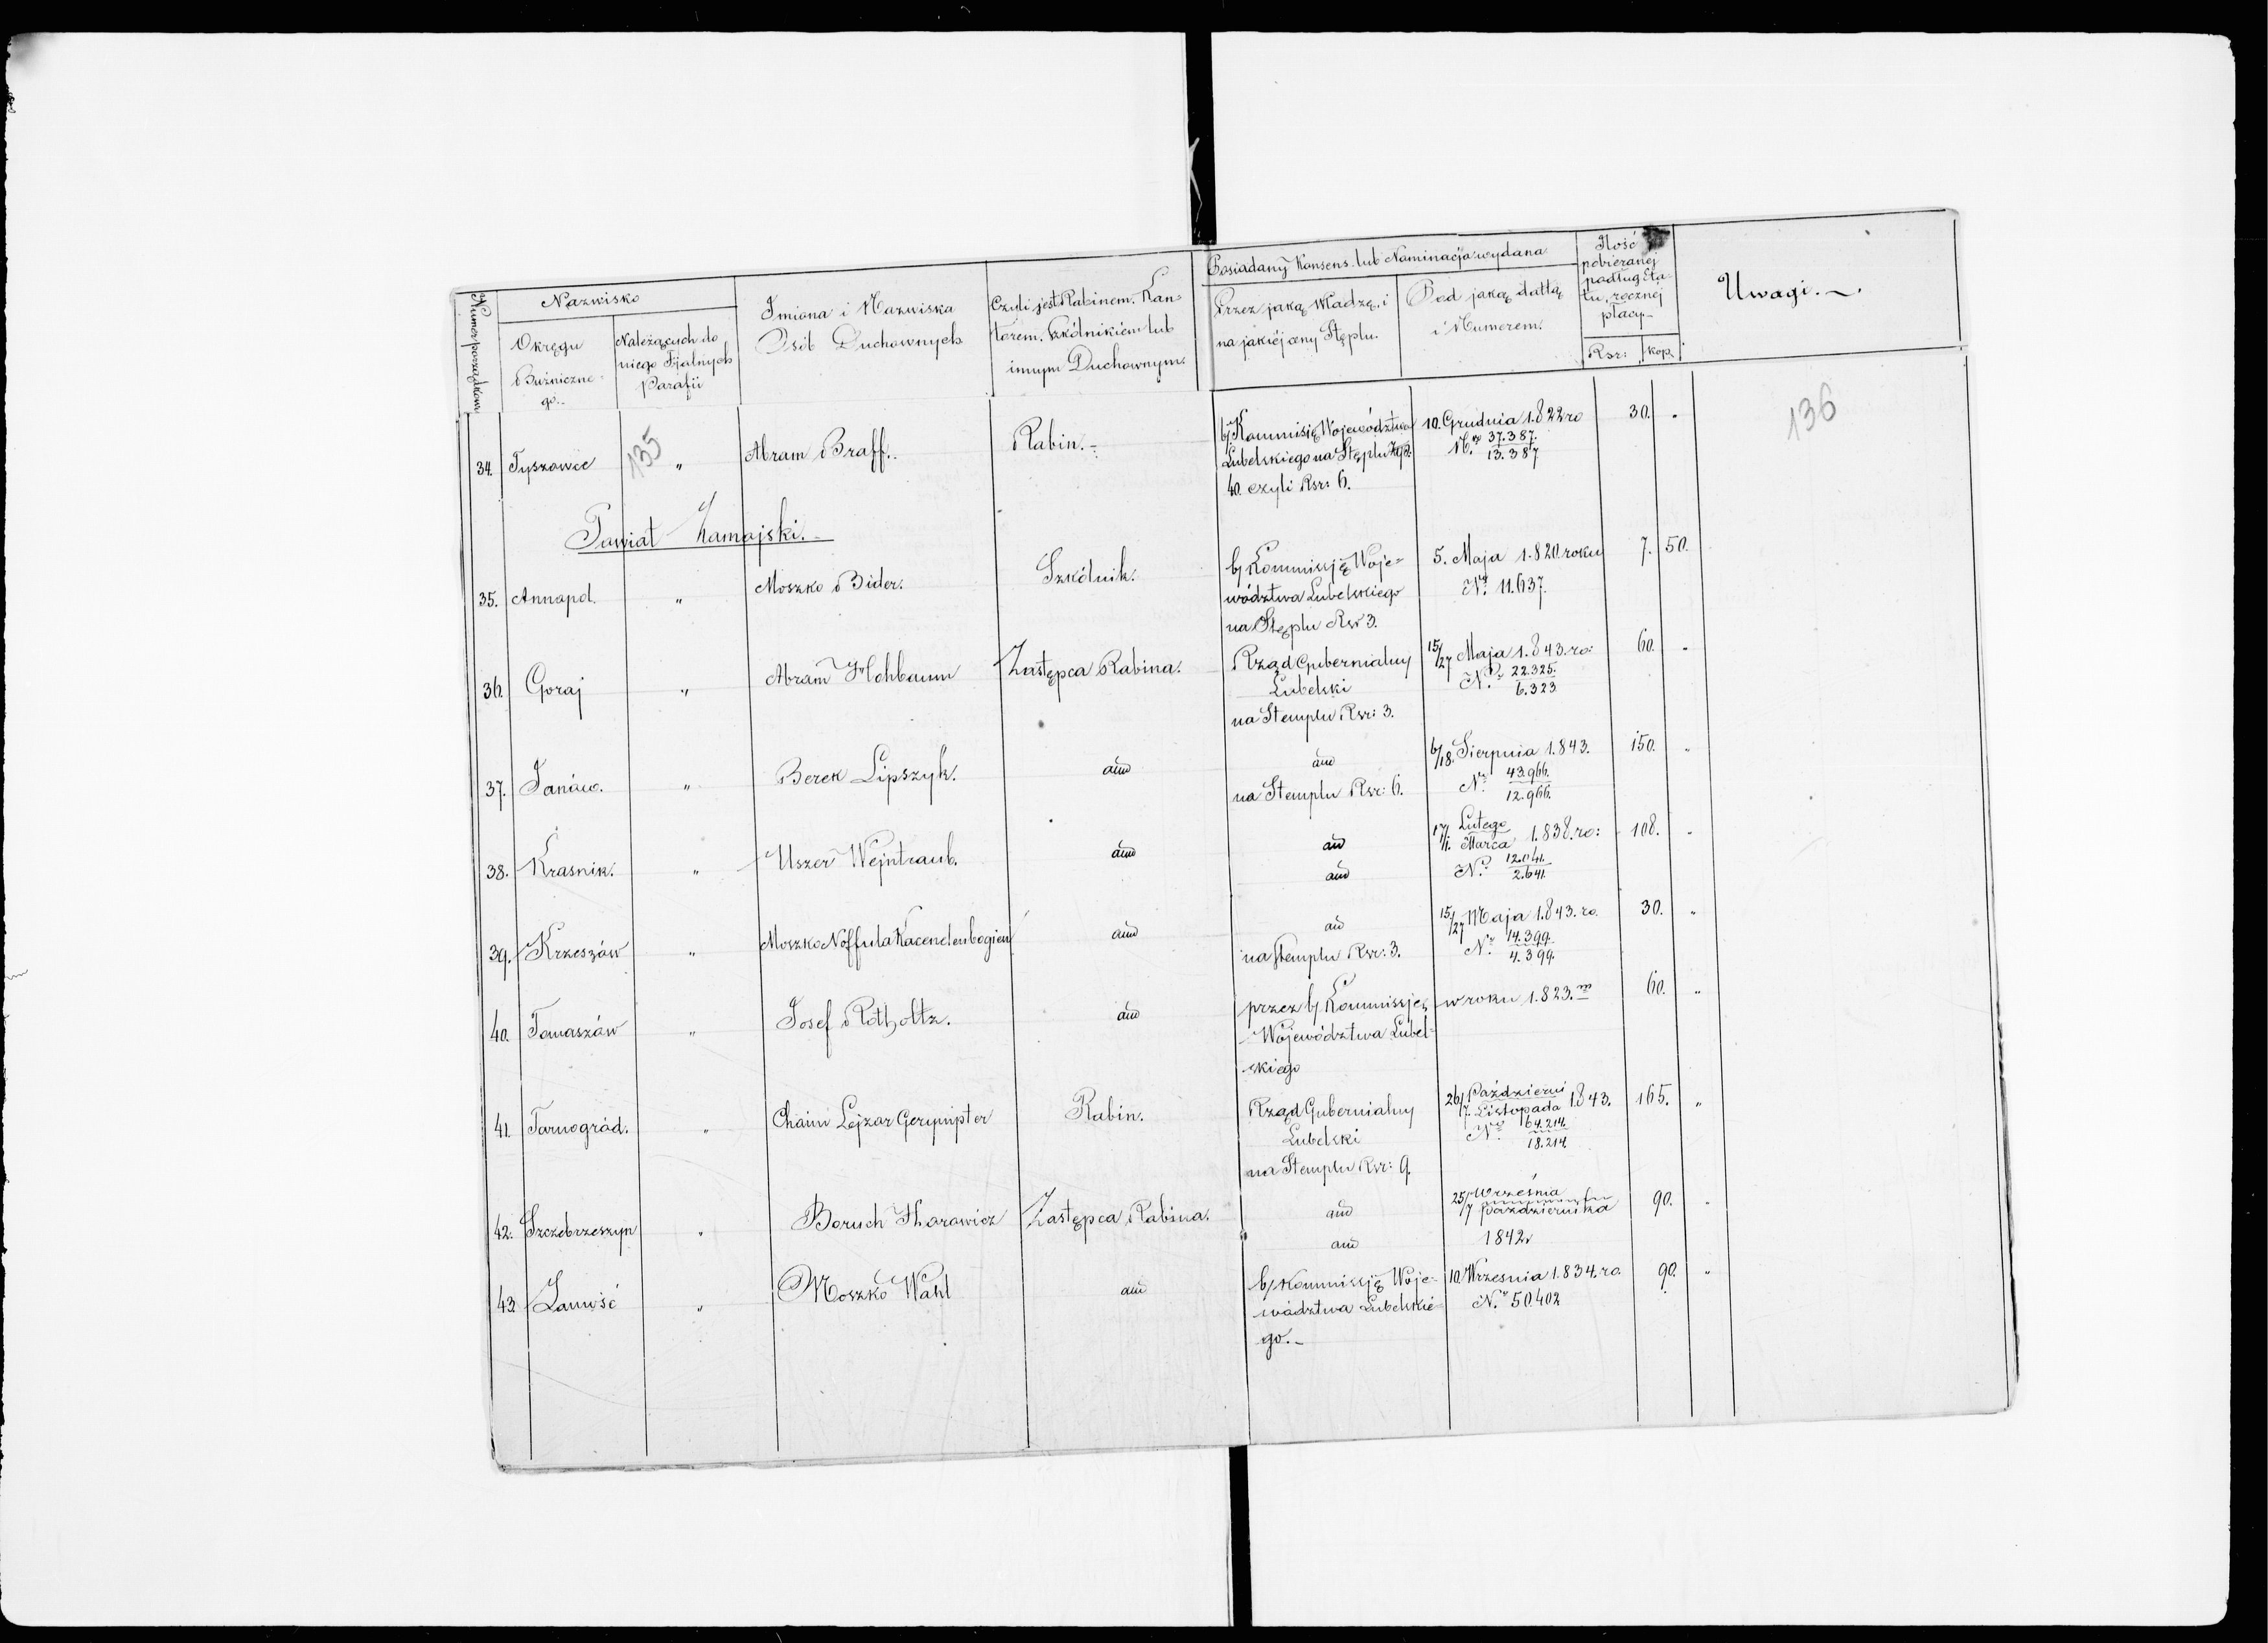 Numer porządkowy
Nazwisko
Okręgu
Bużniczne-
go.
Należących do
niego Fjalnych
Parafii
Imiona i Nazwiska
Osób Duchownych
Czyli jest Rabinem, Kan-
torem, Szkólnikiem lub
innym Duchownym.
Posiadany Konsens lub Nominacja wydana
Przez jaką Władzę, i
na jakiej ceny Stęplu.
Pod jaką dattą
i Numerem.
Ilość
pobieranej
podług Eta-
tu, rocznej
płacy
Rsr: kop.
Uwagi.
135
136
34. Tyszowce " Abram Braff. Rabin. b. Kommisię Województwa 10. Grudnia 1.822 ro 30. "
Lubelskiego na Stęplu Złp. No 37.387.
13.387
40. czyli Rsr: 6.
Powiat Zamojski.
35. Annapol. " Moszko Bider. Szkólnik. b. Kommissję Woje- 5. Maja 1.820 roku 7. 50.
wództwa Lubelskiego No. 11.637.
na Stęplu Rsr 3.
36. Goraj " Abram Hochbaum Zastępca Rabina. Rząd Gubernialny 15/27 Maja 1.843. ro: 60. "
Lubelski No. 22.325.
6.323
na Stemplu Rsr: 3.
37. Janów. " Berek Lipszyk. aud aud 6/18. Sierpnia 1.843. 150. "
na Stemplu Rsr: 6. No. 43.966.
12.966.
38. Krasnik. " Uszer Wejntraub. aud aud 17/1. Lutego
Marca 1.838. ro: 108. "
aud No. 12.641.
2.641.
39. Krzeszów " Moszko Noffula Kacenelenbogien aud aud 15/27 Maja 1.843. ro. 30. "
na stemplu Rsr: 3. No. 14.399.
4.399.
40. Tomaszów " Josef Rotholtz. aud przez b. Kommissję w roku 1.823.m 60. "
Województwa Lubel-
skiego
41. Tarnogród. " Chaim Lejzar Gerympter Rabin. Rząd Gubernialny 26/7. Październi
Listopada 1.843. 165. "
Lubelski No. 64.214.
18.214.
na Stemplu Rsr: 9.
42. Szczebrzeszyn " Boruch Horowicz Zastępca Rabina. aud 25/7 Września
Października 90. "
aud 1842r
43. Zamość " Moszko Wahl aud b. Kommissję Woje- 10. Wrzesnia 1.834. ro. 90. "
wództwa Lubelskie- No. 50.402
go.